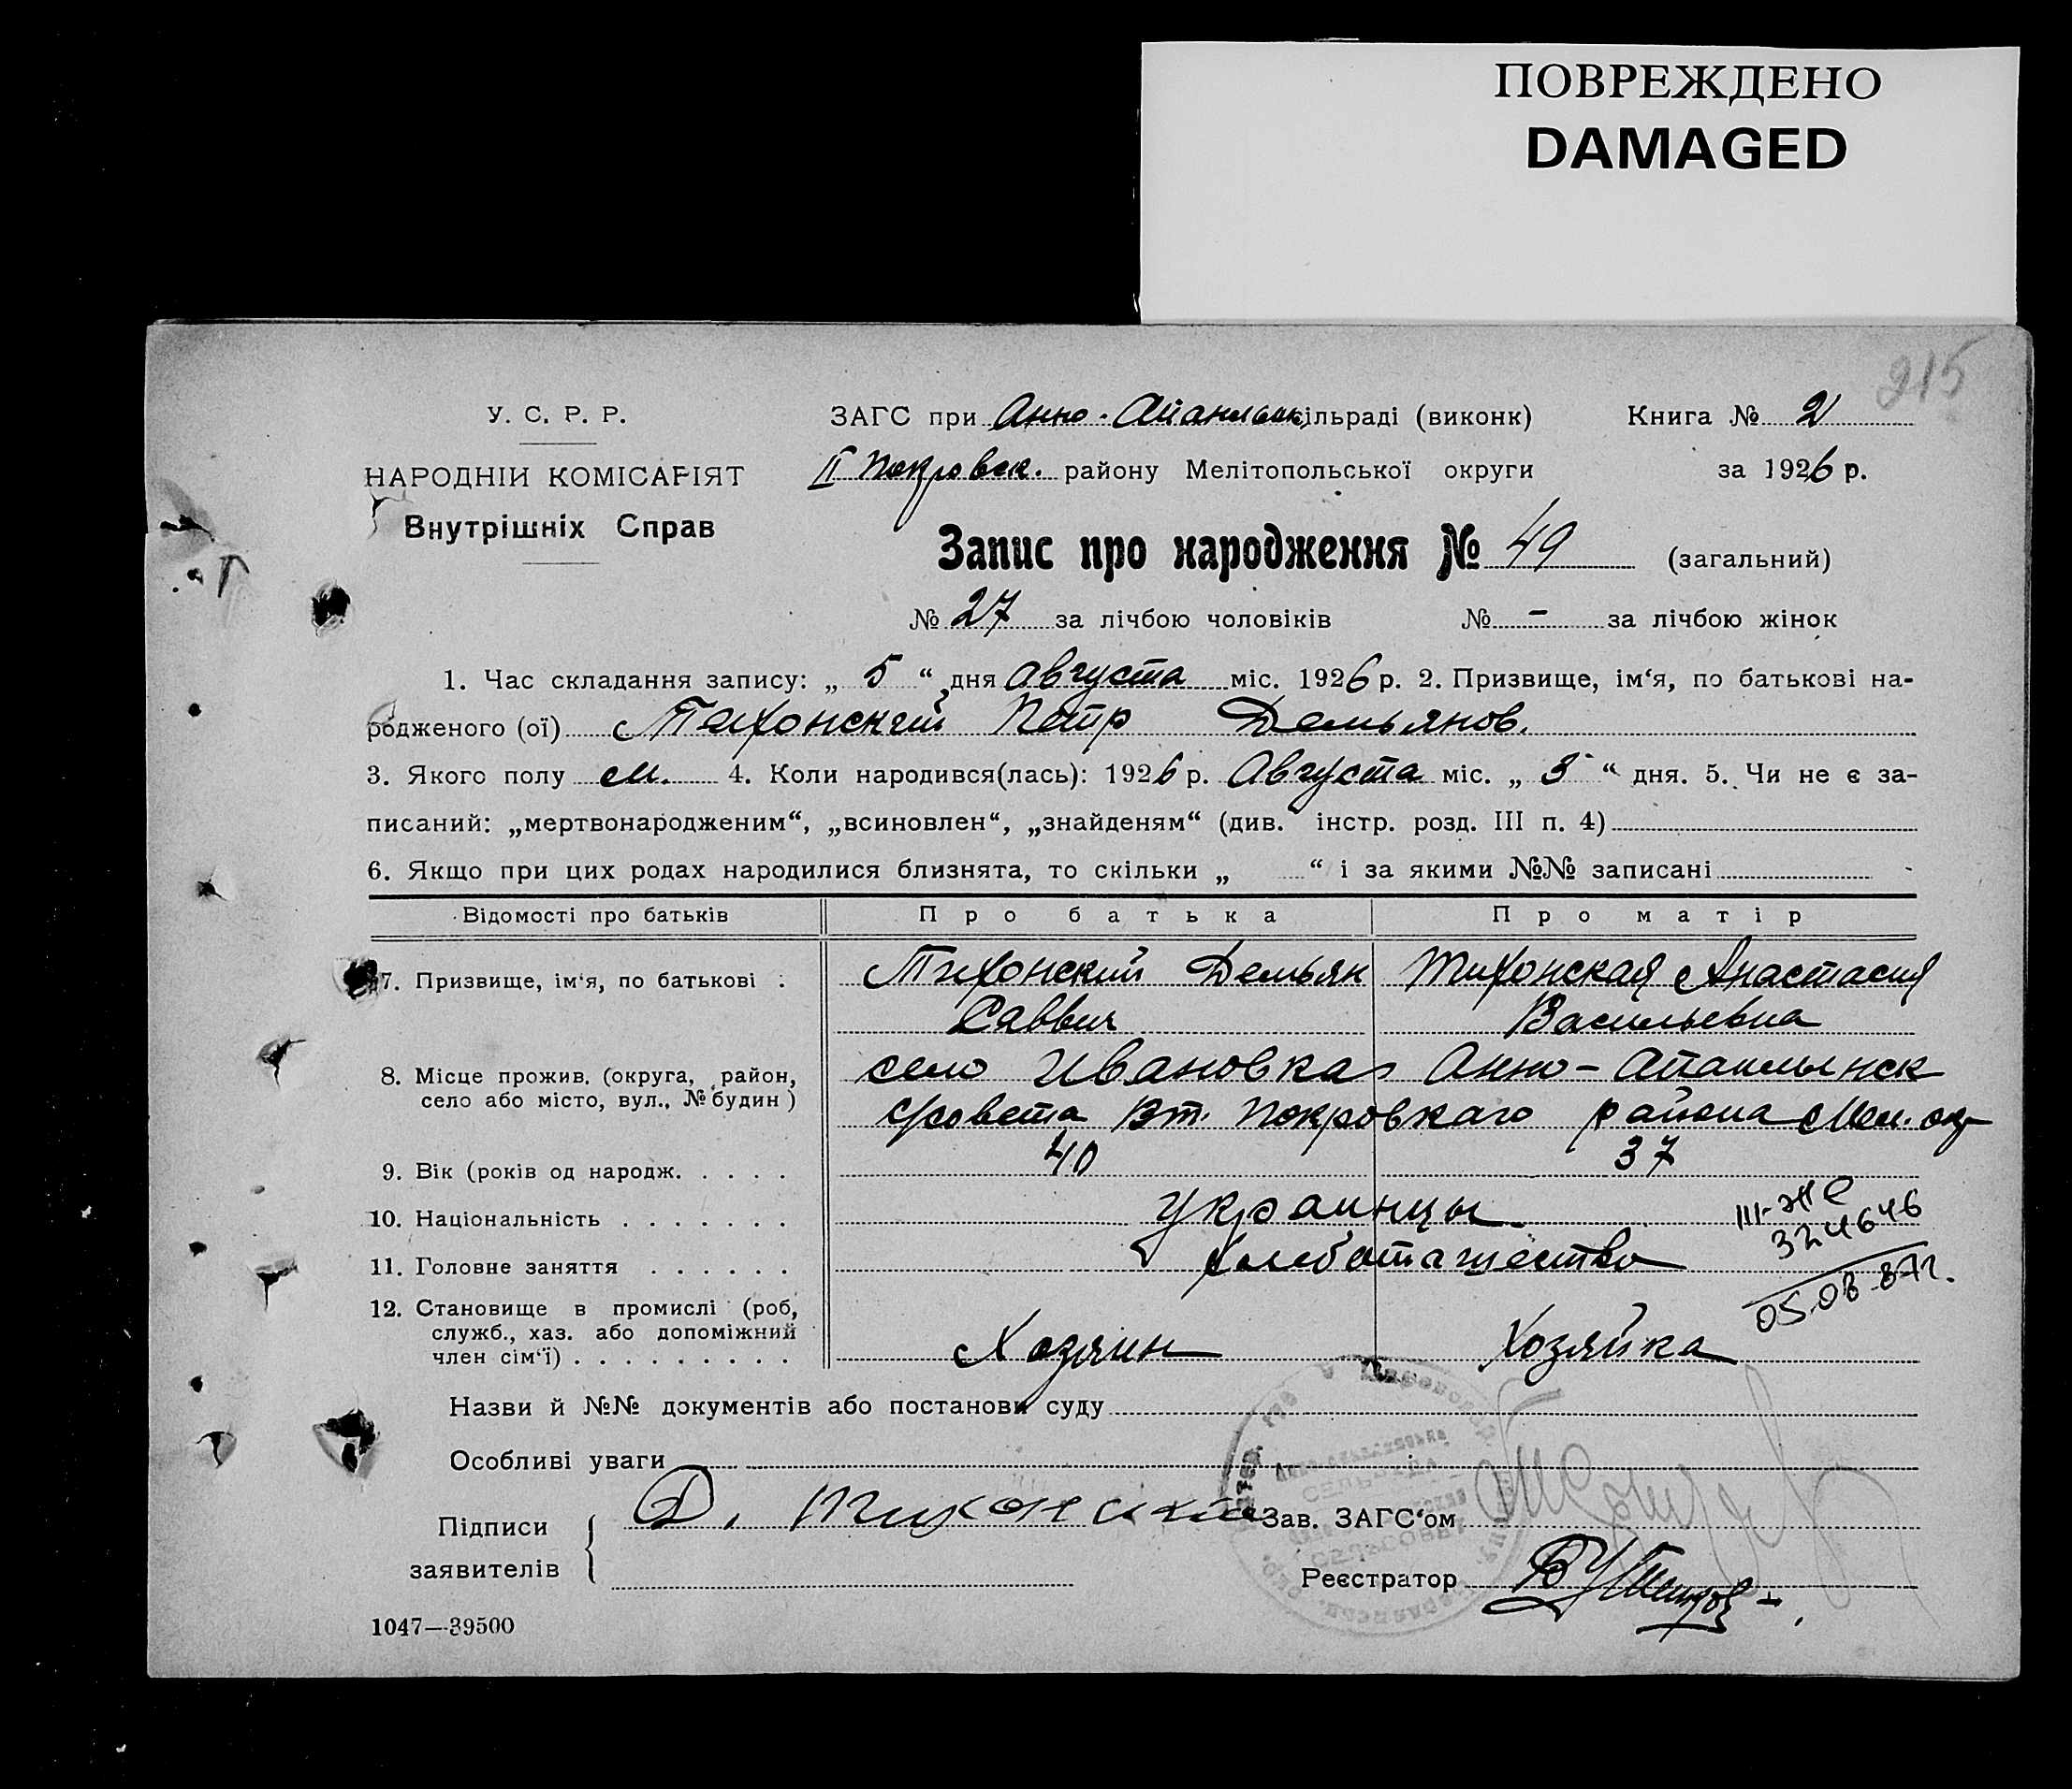 ПОВРЕЖДЕНО
DAMAGED
215
У. С. Р. Р.
НАРОДНІЙ КОМІСАРІЯТ
Внутрішніх Справ
ЗАГС при Анно-Апанльск. сільраді (виконк) Книга № 2
II Покровск. району Мелітопольської округи за 1926 р.
Запис про народження № 49 (загальний)
№ 27 за лічбою чоловіків № - за лічбою жінок
1. Час складання запису: „ 5 “ дня Августа міс. 1926 р. 2. Призвище, ім‘я, по батькові на-
родженого (ої) Тихонский Петр Демьянов.
3. Якого полу м. 4. Коли народився(лась): 1926 р. Августа міс. „ 3 “ дня. 5. Чи не є за-
писаний: „мертвонародженим“, „всиновлен“, „знайденям“ (див. інстр. розд. III п. 4)
6. Якщо при цих родах народилися близнята, то скільки „ “ і за якими №№ записані -
Відомості про батьків Про батька Про матір
7. Призвище, ім‘я, по батькові : Тихонский Демьян Тихонская Анастасия
Саввич Васильевна
8. Місце прожив. (округа, район, село або місто, вул., № будин) село Ивановка Анно-
с/совета Вт. Покровкаго района Мел. окр
9. Вік (років од народж. . . . . 40 37
10. Національність . . . . . . . украинцы
III-ЖС
324646
11. Головне заняття . . . . . .
05.08.87г.
12. Становище в промислі (роб,
служб., хаз. або допоміжний
член сім‘ї) . . . . . . . . . Хозяин Хозяйка
Назви й №№ документів або постанови суду
Особливі уваги
Підписи
заявителів
Д. Тихонский
Зав. ЗАГС‘ом
Реєстратор
1047—39500